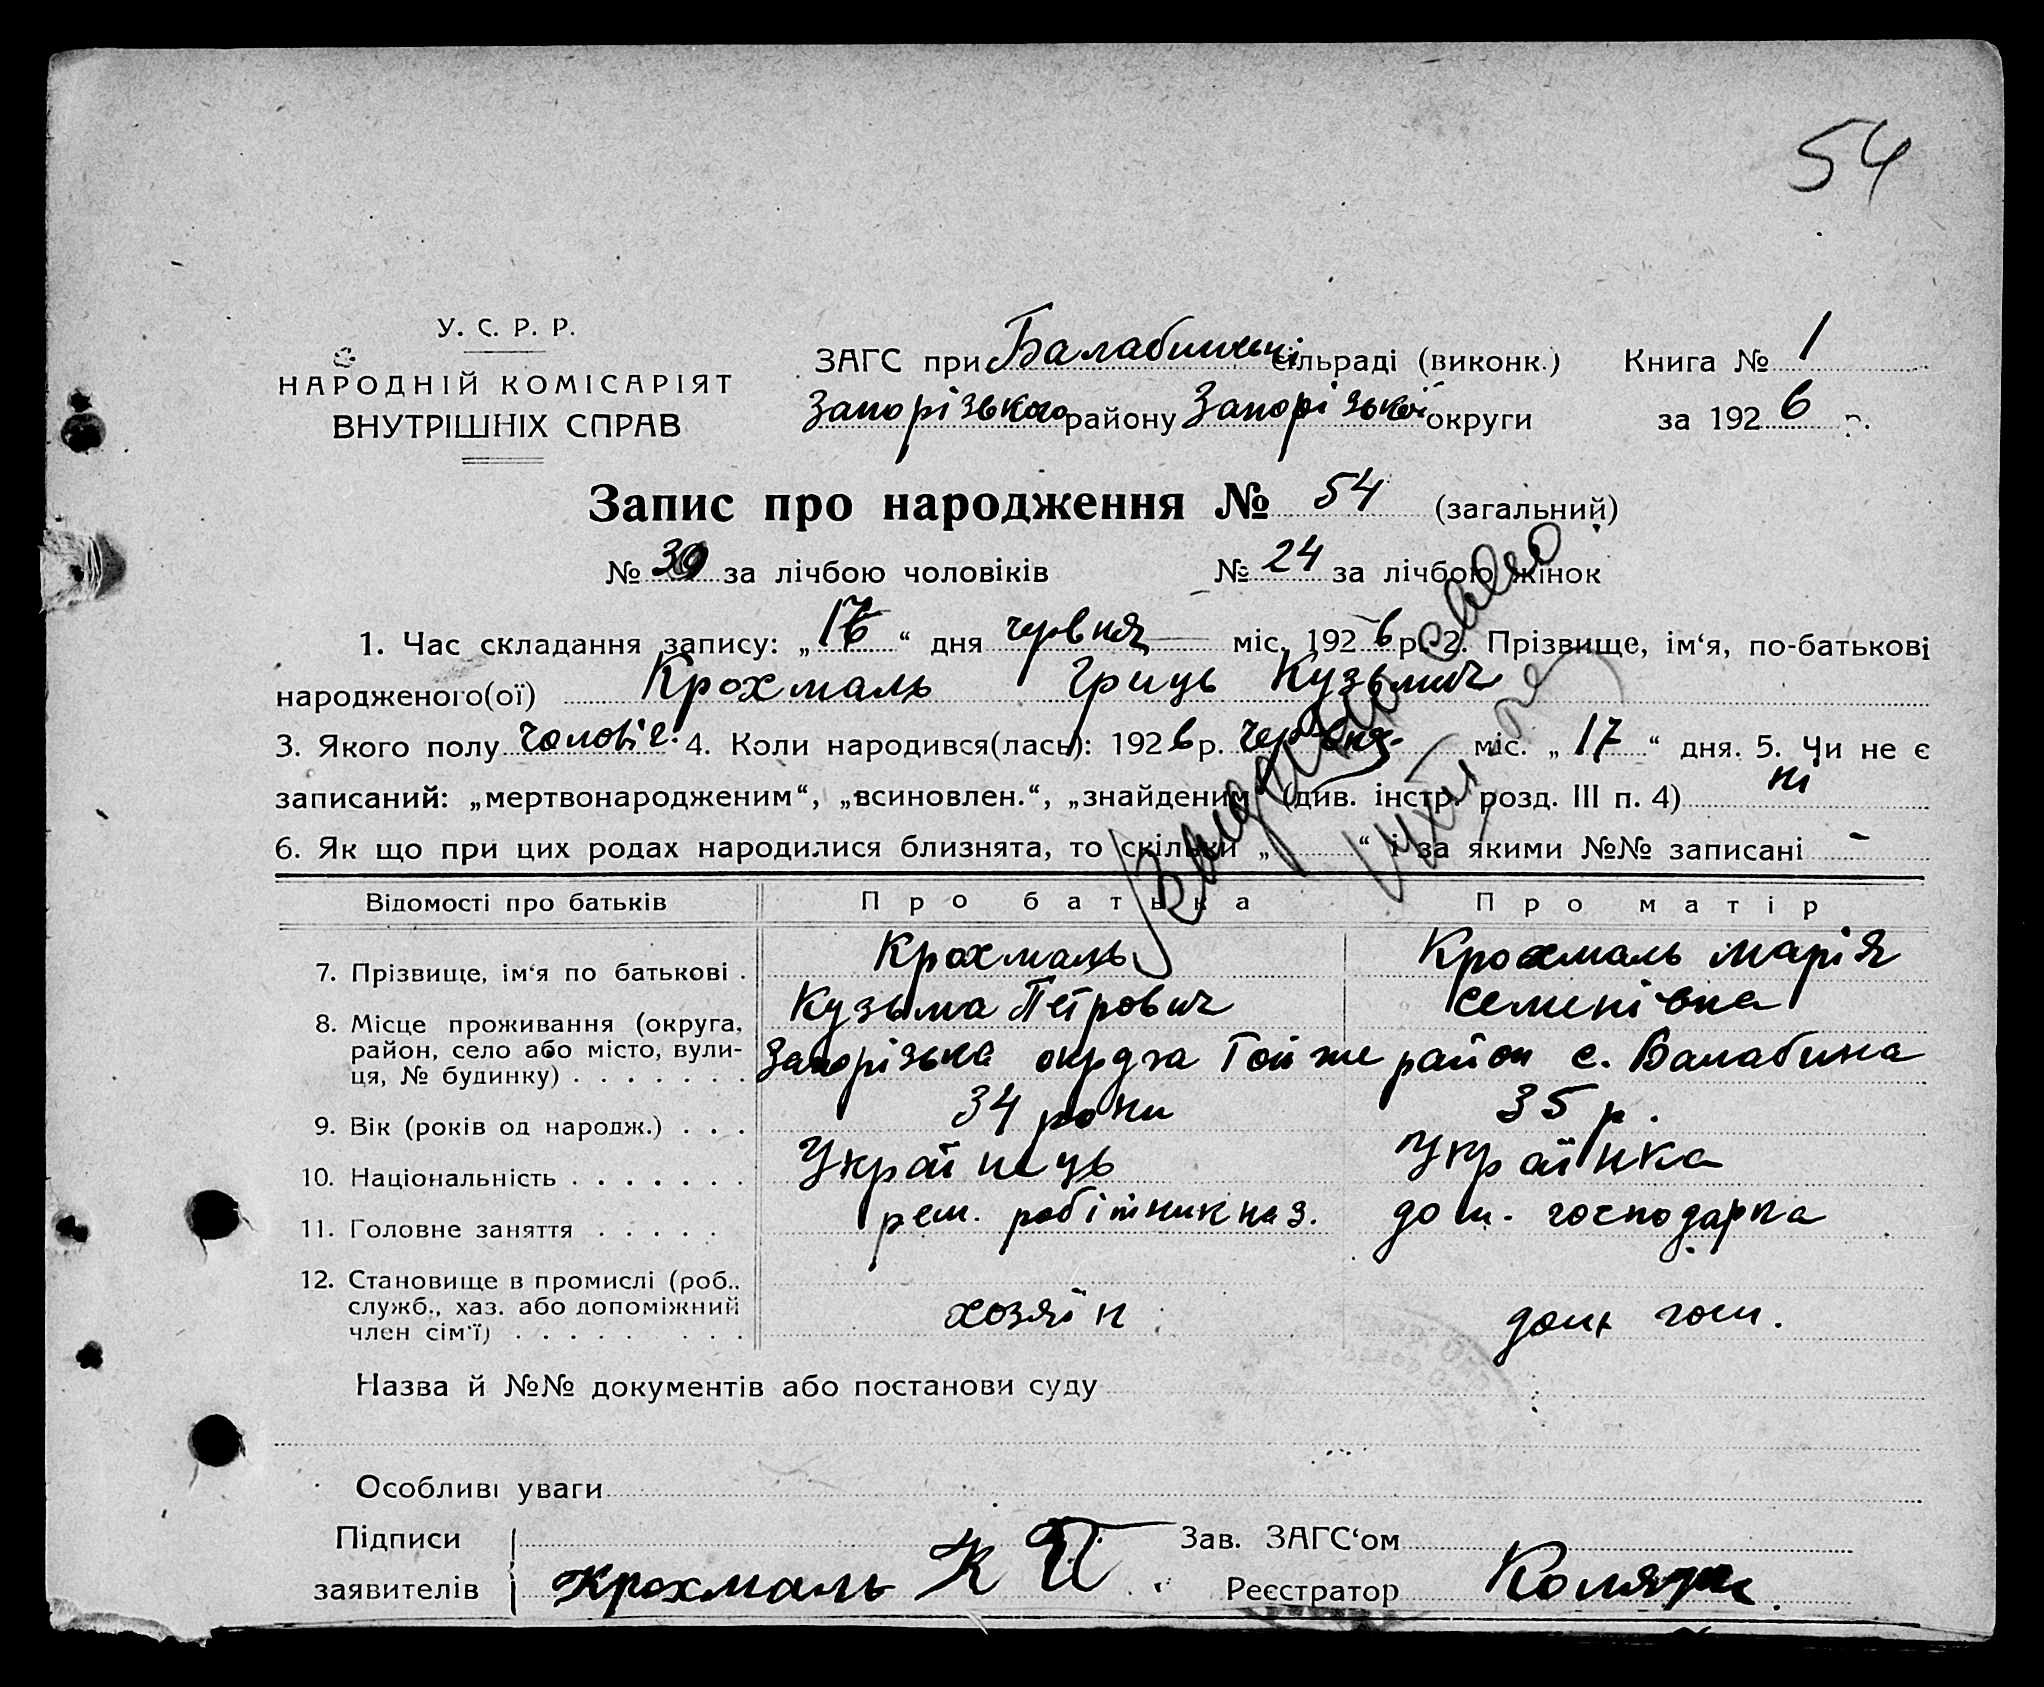 54
У. С. Р. Р.
НАРОДНІЙ КОМІСАРІЯТ
ВНУТРІШНІХ СПРАВ
ЗАГС при Балабинській сільраді (виконк.) Книга № 1
Запорізького району Запорізької округи за 1926 р.
Запис про народження № 54 (загальний)
№ 30 за лічбою чоловіків № 24 за лічбою жінок
1. Час складання запису: „17“ дня червня міс. 1926 р. 2. Прізвище, ім‘я, по-батькові
народженого(ої) Крохмаль Гриць Кузьмич
3. Якого полу чоловіч. 4. Коли народився(лась): 1926 р. червня міс. „17“ дня. 5. Чи не є
записаний: „мертвонародженим“, „всиновлен.“, „знайденим“ (див. інстр. розд. III п. 4) ні
6. Як що при цих родах народилися близнята, то скільки „ “ і за якими №№ записані –
Відомості про батьків Про батька Про матір
7. Прізвище, ім‘я по батькові . Крохмаль Крохмаль Марія
Кузьма Петрович Семенівна
8. Місце проживання (округа,
район, село або місто, вули-
ця, № будинку) . . . . . . . Запорізька округа Той же район с. Балабина
9. Вік (років од народж.) . . . 34 роки 35 р.
10. Національність . . . . . . . Українець Українка
11. Головне заняття . . . . . рем. робітник на з. дом. господарка
12. Становище в промислі (роб.,
служб., хаз. або допоміжний
член сім‘ї) . . . . . . . . хозяїн дом. госп.
Назва й №№ документів або постанови суду
Особливі уваги
Підписи Зав. ЗАГС‘ом
заявителів Крохмаль К П Реєстратор